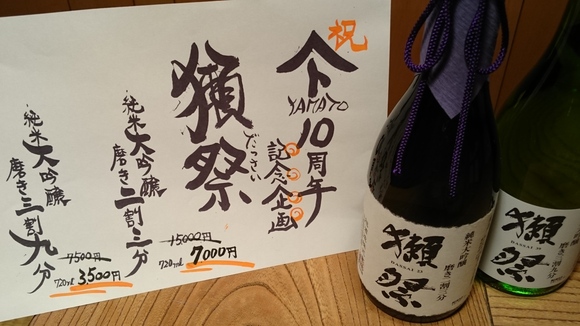 祝
YAMATO
10周年
記念企画
獺祭
だっさい
純米大吟醸
磨き二割三分
15000円
720ml 7000円
純米大吟醸
磨き三割九分
7500円
720ml 3,500円
獺祭
DASSAI 23
純米大吟醸
磨き二割三分
獺祭
DASSAI
磨き三割九分